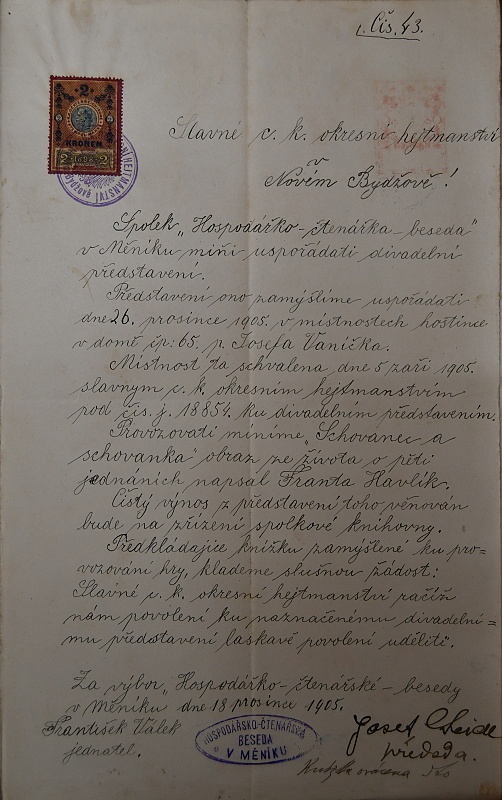 Čís. 43.
2
KRONEN
2 1898 2
Slavné c. k. okresní hejtmanství
v
Novém Bydžově!
Spolek „Hospodářko-čtenářka-beseda"
v Měníku míní uspořádati divadelní
představení.
Představení ono zamýšlíme uspořádati
dne 26. prosince 1905. v místnostech hostince
v domě čp: 65. p. Josefa Vaníčka.
Místnost ta schválena dne 5 září 1905.
slavným c. k. okresním hejtmanstvím
pod čís. j. 18854. ku divadelním představením.
Provozovati míníme „Schovanec a
schovanka" obraz ze života o pěti
jednáních napsal Franta Havlík.
Čistý výnos z představení toho věnován
bude na zřízení spolkové knihovny.
Předkládajíce knížku zamýšlené ku pro-
vozování hry, klademe slušnou žádost:
Slavné c. k. okresní hejtmanství račiž
nám povolení ku naznačenému divadelní-
mu představení laskavě povolení uděliti".
Za výbor „Hospodářko-čtenářské-besedy
v Měníku dne 18 prosince 1905.
František Válek
jednatel.
HOSPODÁŘSKO-ČTENÁŘSKÁ
BESEDA
V MĚNÍKU
Josef
předseda.